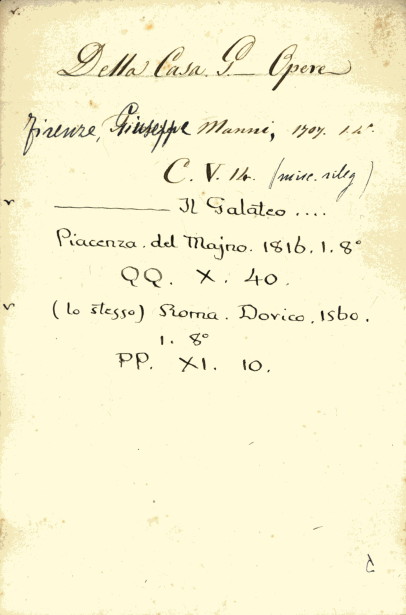 Della Casa. G_ Opere
Firenze, Giuseppe Manni, 1707. 1. 4°.
C. V. 14. (misc. rileg)
Il Galateo ....
Piacenza. del Majno. 1816. 1. 8°
QQ. X. 40.
(lo stesso) Roma. Dorico. 1560.
1. 8°
PP. XI. 10.